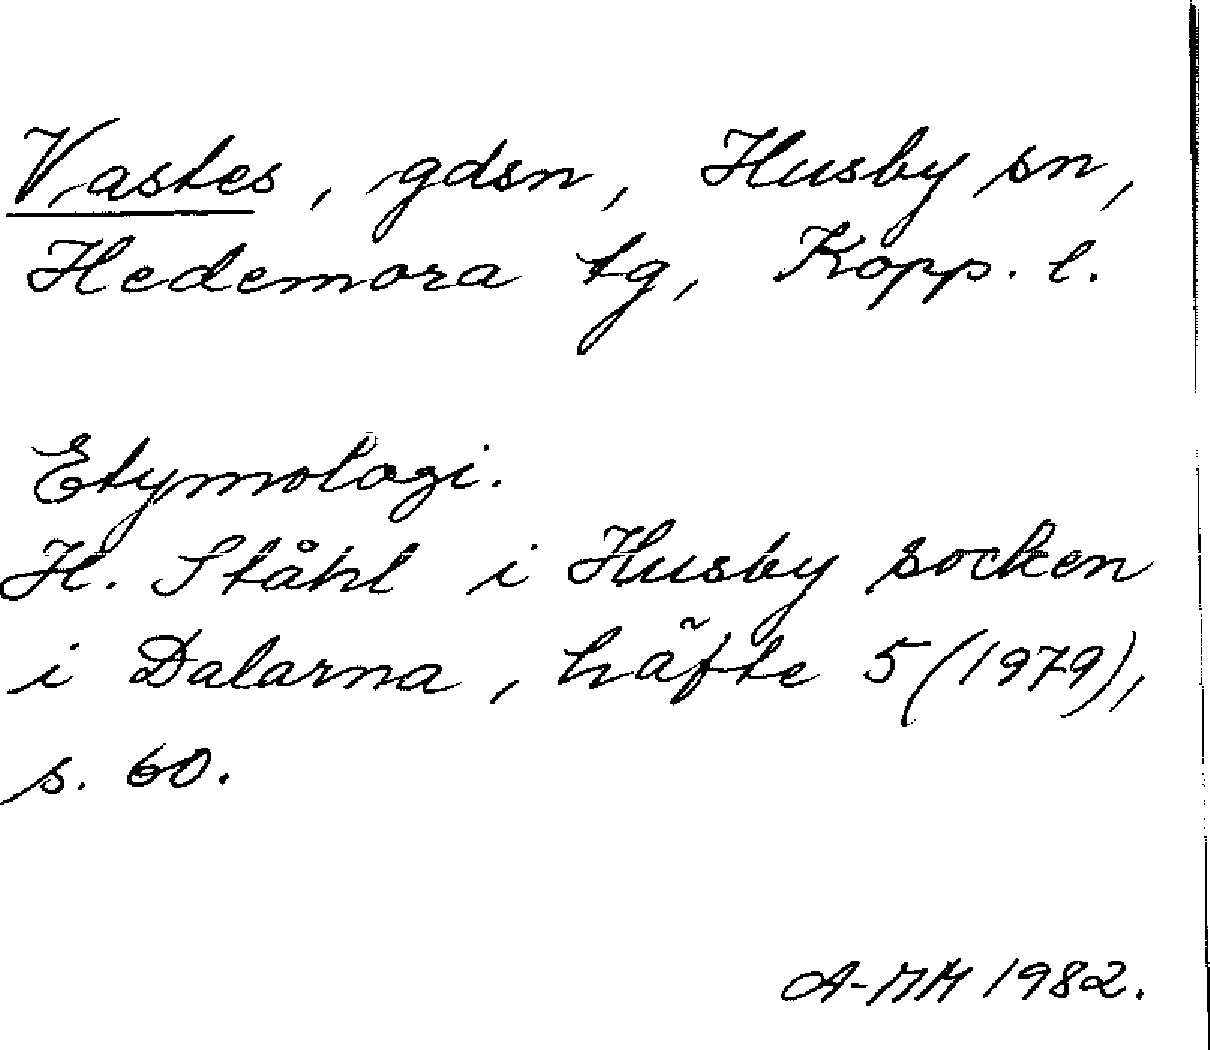 Vastes, gdsn, Husby sn,
Hedemora tg, Kopp. l.
Etymologi.
H. Ståhl i Husby socken
i Dalarna, häfte 5 (1979),
s. 60.
A-MM 1982.